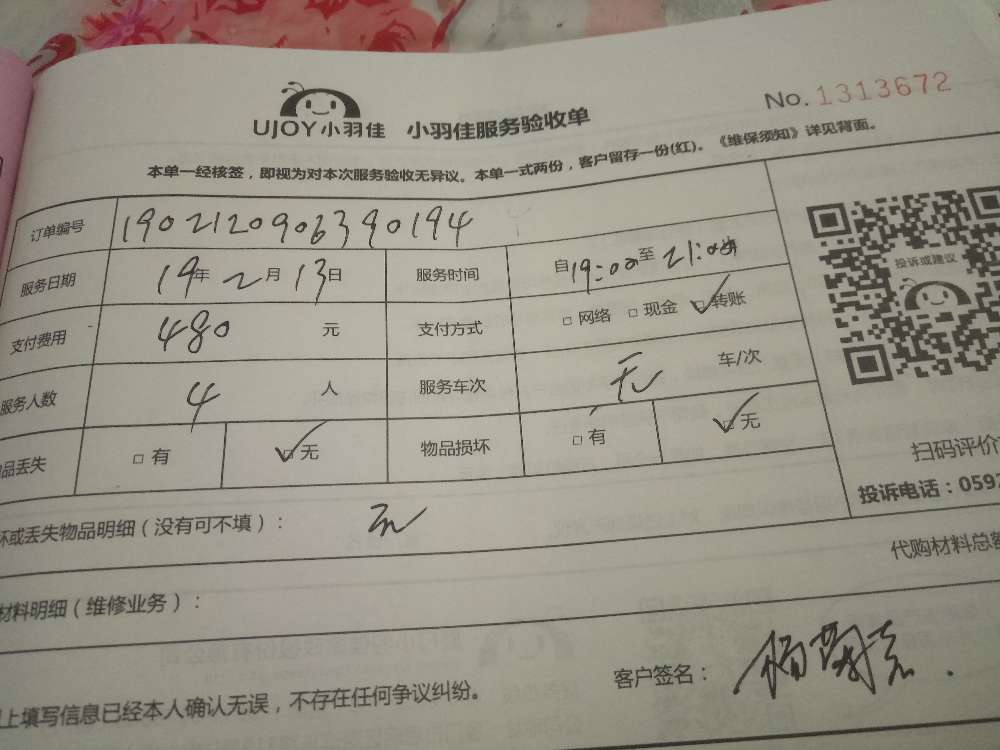 UJOY小羽佳 小羽佳服务验收单
No. 1313672
本单一经核签，即视为对本次服务验收无异议。本单一式两份，客户留存一份(红)。《维保须知》详见背面。
订单编号 1902120906390194
投诉或建议
服务日期 19年2月13日 服务时间 自19:00至21:00
支付费用 480 元 支付方式 □网络 □现金 ☑转账
服务人数 4 人 服务车次 无 车/次
品丢失 □有 ☑无 物品损坏 □有 ☑无
扫码评价
投诉电话：0592
坏或丢失物品明细（没有可不填）： 无
代购材料总额
材料明细（维修业务）：
客户签名：
上填写信息已经本人确认无误，不存在任何争议纠纷。